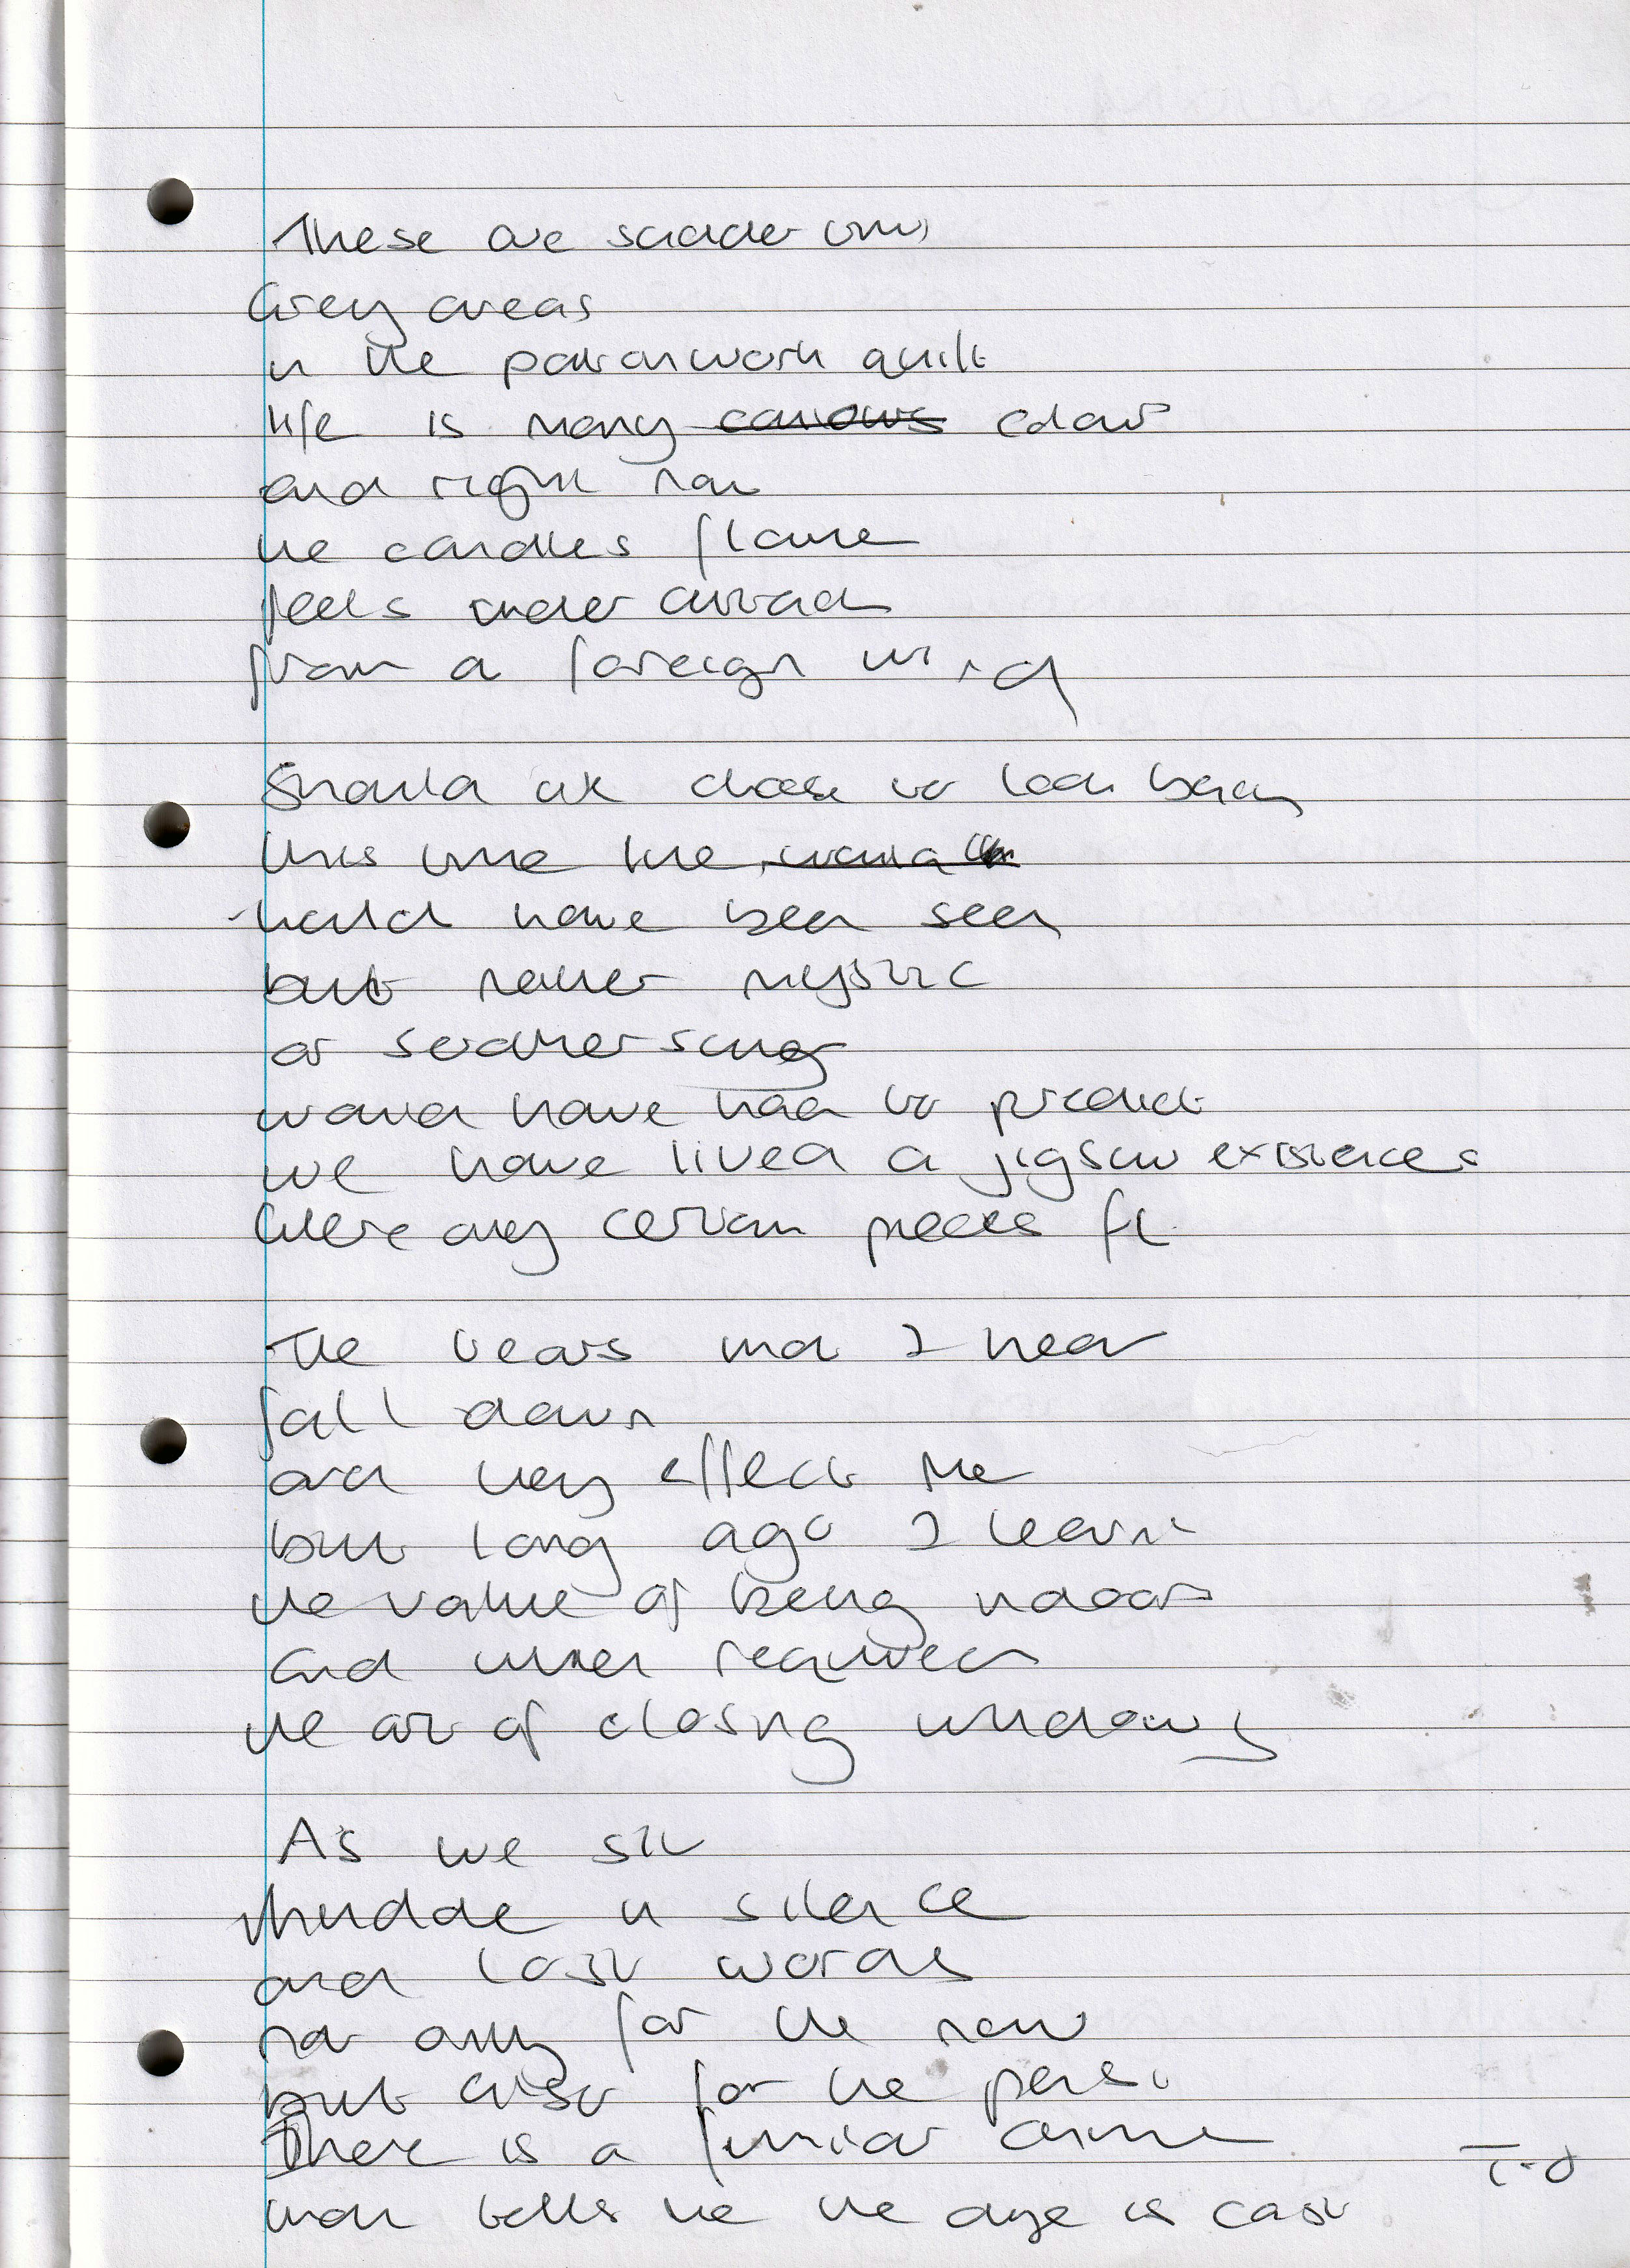 These are sadder times
Grey areas
in the patchwork quilt
life is many colours
and right now
the candles flame
feels under attack
from a foreign wind
Should we choose to look back
this time line
could have been seen
but neither mystic
or soothsayer
would have had to predict
we have lived a jigsaw existence
where only certain pieces fit
The tears that I hear
fall down
and they effect me
but long ago I learnt
the value of being indoors
and when required
the art of closing windows
As we sit
huddle in silence
and lost words
not only for the now
but also for the past
There is a familiar chime
that tells me the dye is cast